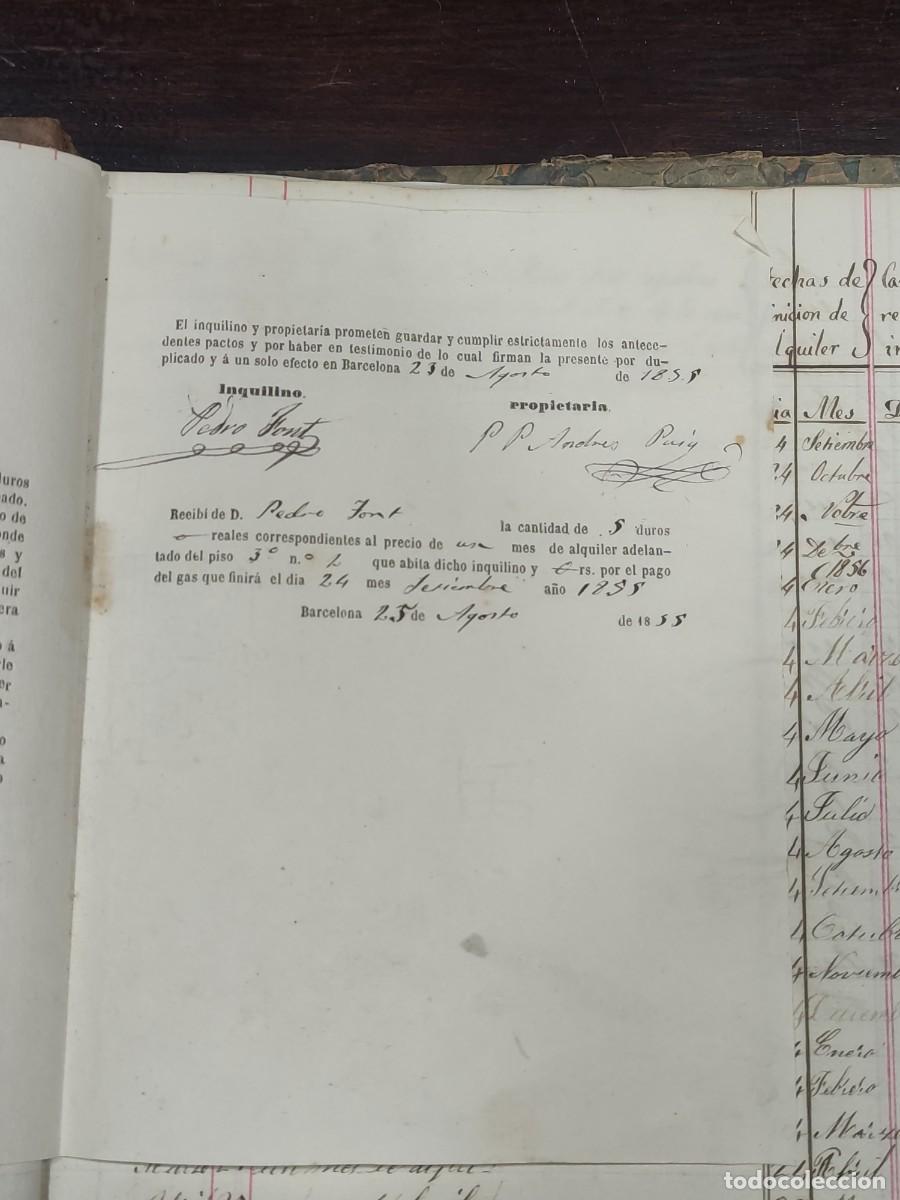 El inquilino y propietaría prometen guardar y cumplir estrictamente los antece-
dentes pactos y por haber en testimonio de lo cual firman la presente por du-
plicado y á un solo efecto en Barcelona 25 de Agosto de 1855
Inquilino.
Propietaria.
Pedro Font
P P Andres Puig
Recibí de D. Pedro Font la cantidad de 5 duros
reales correspondientes al precio de un mes de alquiler adelan-
tado del piso 3º n.º que abita dicho inquilino y rs. por el pago
del gas que finirá el dia 24 mes Setiembre año 1855
Barcelona 25 de Agosto de 1855
duros
ado.
o de
onde
s y
del
uir
era
o á
rle
er
echas de
nicion de re
lquiler
ia Mes
4 Setiembre
24 Octubre
24
4 Debre
1856
4 Enero
4 Febrero
4 Marzo
4 Abril
4 Mayo
4 Junio
4 Julio
4 Agosto
4 Setiemb
4 Octub
4 Noviem
Enero
Febrero
Marzo
4 Abril
todocoleccion